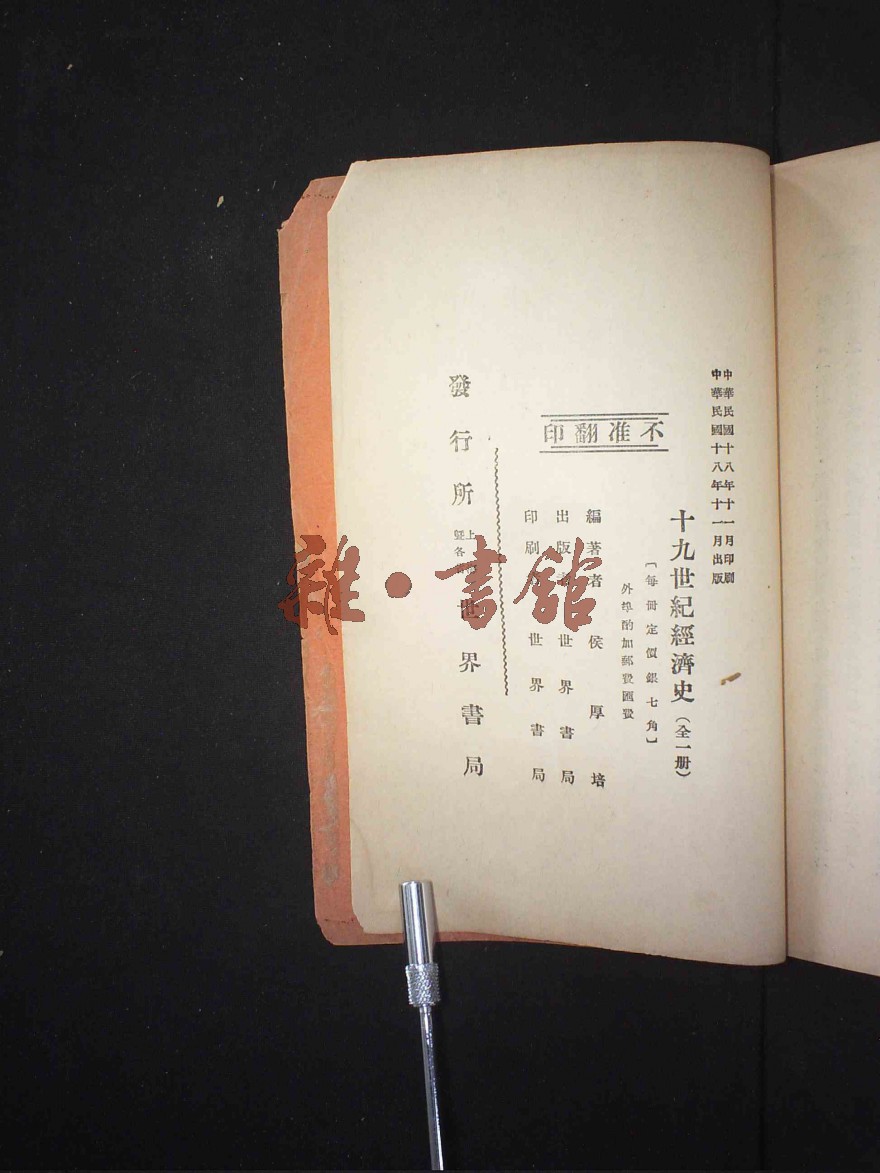 中華民國十八年十一月印刷
中華民國十八年十一月出版
十九世紀經濟史（全一册）
〔每冊定價銀七角〕
外埠酌加郵費匯費
不准翻印
編著者 侯厚培
出版 世界書局
印刷 世界書局
發行所 上 曁各 世界書局
雜·書館